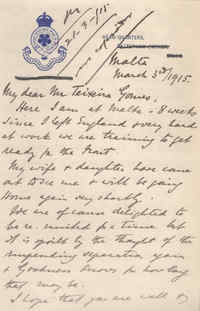 21-3-/15
HEAD QUARTERS,
Malta
March 3rd/1915.
My dear Mr Teixeira Gomes.
Here I am at Malta - 8 weeks
since I left England & very hard
at work we are training to get
ready for the Front.
My wife & daughter have come
out to see me & will be going
home again very shortly.
We are of cause delighted to
be re-united for a time but
it is spoilt by the thought of the
impending separation again
& Goodness knows for how long
that may be.
I hope that you are well &